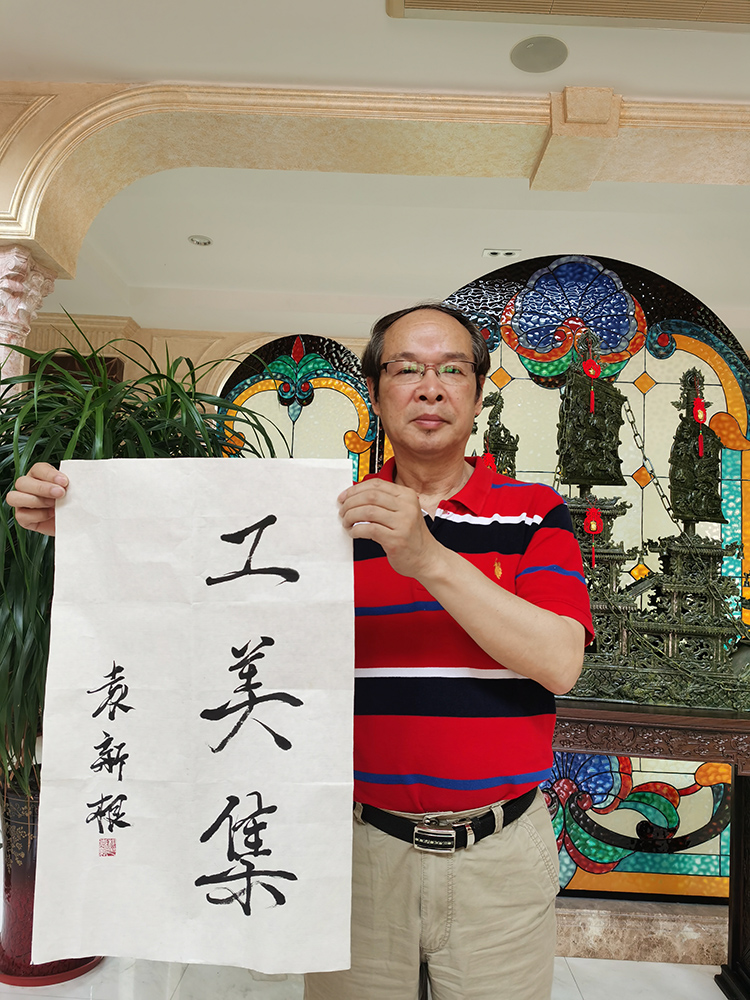 工美集
袁新根